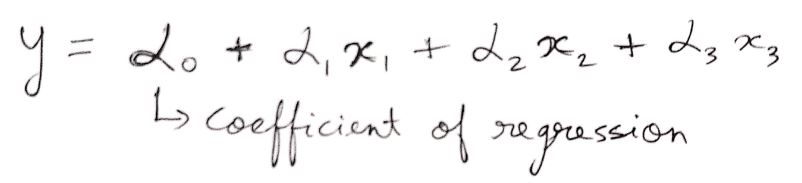 y = α₀ + α₁x₁ + α₂x₂ + α₃x₃
↳ coefficient of regression